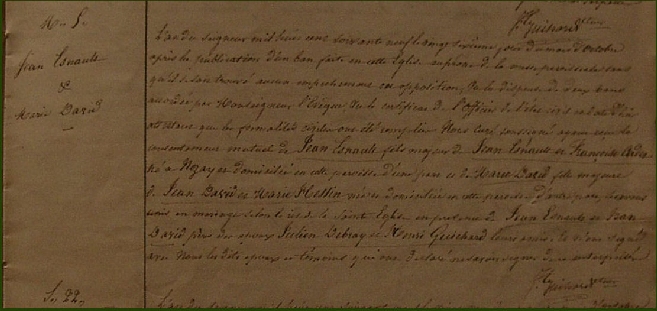 Jean Esnault
&
Marie David
Guichard
L'an du Seigneur mil huit cent soixante neuf le vingt sixième jour du mois d'Octobre
après la publication d'un ban faite en cette Eglise au prône de la messe paroissiale sans
qu'il se soit trouvé aucun empêchement ou opposition, Vu la dispense de deux bans
accordée par Monseigneur l'Evêque Vu le certificat de l'Officier de l'état civil
attestant que les formalités civiles ont été remplies Nous Curé soussigné avons reçu le
consentement mutuel de Jean Esnault fils majeur de Jean Esnault et Françoise
né à Nozay et domicilié en cette paroisse d'une part et de Marie David fille majeure
de Jean David et Marie née et domiciliée en cette paroisse d'autre part, les avons
unis en mariage selon le rit de la Sainte Eglise en présence de Jean Esnault et Jean
David pères des époux Julien Debray et Henri Guichard
avec Nous les dits époux et témoins qui ont déclaré ne savoir signer
Guichard
S. 22